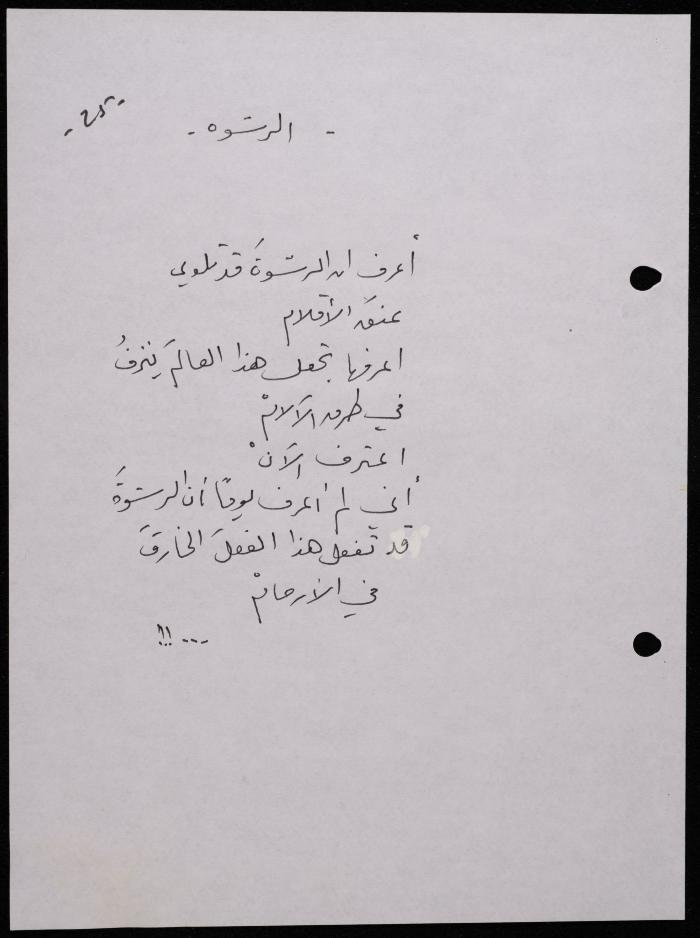 -٢٥-
- الرشوه -
أعرف ان الرشوةَ قد تلوي
عنقَ الأقلام
اعرفها تجعل هذا العالمَ ينزفُ
في طرق الآلامْ
اعترف الآنْ
أني لم أعرف يومًا أن الرشوةَ
قد تفعل هذا الفعلَ الخارقَ
في الأرحامْ
...!!